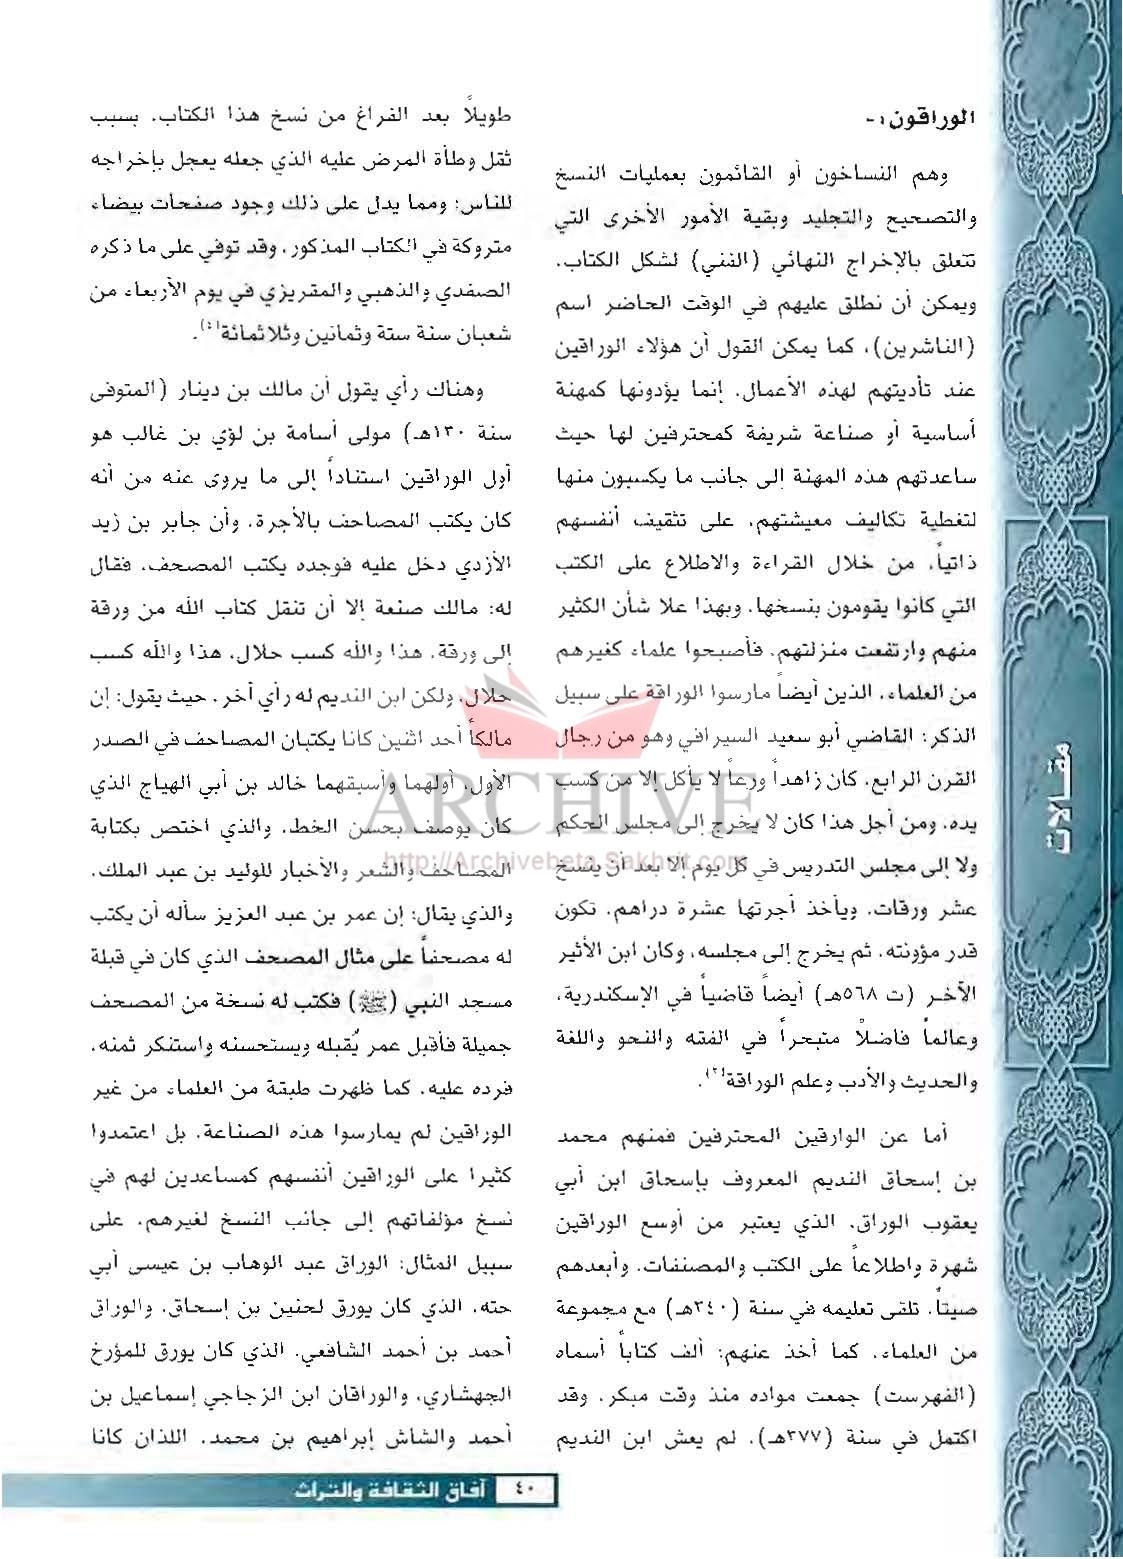 الوراقون :-
وهم النساخون أو القائمون بعمليات النسخ
والتصحيح والتجليد وبقية الأمور الأخرى التي
تتعلق بالإخراج النهائي (الفني) لشكل الكتاب،
ويمكن أن نطلق عليهم في الوقت الحاضر اسم
(الناشرين)، كما يمكن القول أن هؤلاء الوراقين
عند تأديتهم لهذه الأعمال، إنما يؤدونها كمهنة
أساسية أو صناعة شريفة كمحترفين لها حيث
ساعدتهم هذه المهنة إلى جانب ما يكسبون منها
لتغطية تكاليف معيشتهم، على تثقيف أنفسهم
ذاتياً، من خلال القراءة والاطلاع على الكتب
التي كانوا يقومون بنسخها، وبهذا علا شأن الكثير
منهم وارتفعت منزلتهم، فأصبحوا علماء كغيرهم
من العلماء، الذين أيضاً مارسوا الوراقة على سبيل
الذكر: القاضي أبو سعيد السيرافي وهو من رجال
القرن الرابع، كان زاهداً ورعاً لا يأكل إلا من كسب
يده، ومن أجل هذا كان لا يخرج إلى مجلس الحكم
ولا إلى مجلس التدريس في كل يوم إلا بعد أن ينسخ
عشر ورقات، ويأخذ أجرتها عشرة دراهم، تكون
قدر مؤونته، ثم يخرج إلى مجلسه، وكان ابن الأثير
الآخر (ت ٥٦٨هـ) أيضاً قاضياً في الإسكندرية،
وعالماً فاضلاً متبحراً في الفقه والنحو واللغة
والحديث والأدب وعلم الوراقة(٣).
أما عن الوارقين المحترفين فمنهم محمد
بن إسحاق النديم المعروف بإسحاق ابن أبي
يعقوب الوراق، الذي يعتبر من أوسع الوراقين
شهرة واطلاعاً على الكتب والمصنفات، وأبعدهم
صيتاً، تلقى تعليمه في سنة (٣٤٠هـ) مع مجموعة
من العلماء، كما أخذ عنهم: ألف كتاباً أسماه
(الفهرست) جمعت مواده منذ وقت مبكر، وقد
اكتمل في سنة (٣٧٧هـ)، لم يعش ابن النديم
طويلاً بعد الفراغ من نسخ هذا الكتاب، بسبب
ثقل وطأة المرض عليه الذي جعله يعجل بإخراجه
للناس: ومما يدل على ذلك وجود صفحات بيضاء
متروكة في الكتاب المذكور، وقد توفي على ما ذكره
الصفدي والذهبي والمقريزي في يوم الأربعاء من
شعبان سنة ستة وثمانين وثلاثمائة(٤).
وهناك رأي يقول أن مالك بن دينار (المتوفى
سنة ١٣٠هـ) مولى أسامة بن لؤي بن غالب هو
أول الوراقين استناداً إلى ما يروى عنه من أنه
كان يكتب المصاحف بالأجرة، وأن جابر بن زيد
الأزدي دخل عليه فوجده يكتب المصحف، فقال
له: مالك صنعة إلا أن تنقل كتاب الله من ورقة
إلى ورقة، هذا والله كسب حلال، هذا والله كسب
حلال، ولكن ابن النديم له رأي آخر، حيث يقول: إن
مالكاً أحد اثنين كانا يكتبان المصاحف في الصدر
الأول، أولهما وأسبقهما خالد بن أبي الهياج الذي
كان يوصف بحسن الخط، والذي اختص بكتابة
المصاحف والشعر والأخبار للوليد بن عبد الملك،
والذي يقال: إن عمر بن عبد العزيز سأله أن يكتب
له مصحفاً على مثال المصحف الذي كان في قبلة
مسجد النبي (ﷺ) فكتب له نسخة من المصحف
جميلة فأقبل عمر يُقبله ويستحسنه واستنكر ثمنه،
فرده عليه، كما ظهرت طبقة من العلماء من غير
الوراقين لم يمارسوا هذه الصناعة، بل اعتمدوا
كثيرا على الوراقين أنفسهم كمساعدين لهم في
نسخ مؤلفاتهم إلى جانب النسخ لغيرهم، على
سبيل المثال: الوراق عبد الوهاب بن عيسى أبي
حته، الذي كان يورق لحنين بن إسحاق، والوراق
أحمد بن أحمد الشافعي، الذي كان يورق للمؤرخ
الجهشاري، والوراقان ابن الزجاجي إسماعيل بن
أحمد والشاش إبراهيم بن محمد، اللذان كانا
مقالات
ARCHIVE
http://Archivebeta.Sakhrit.com
٤٠ آفاق الثقافة والتراث